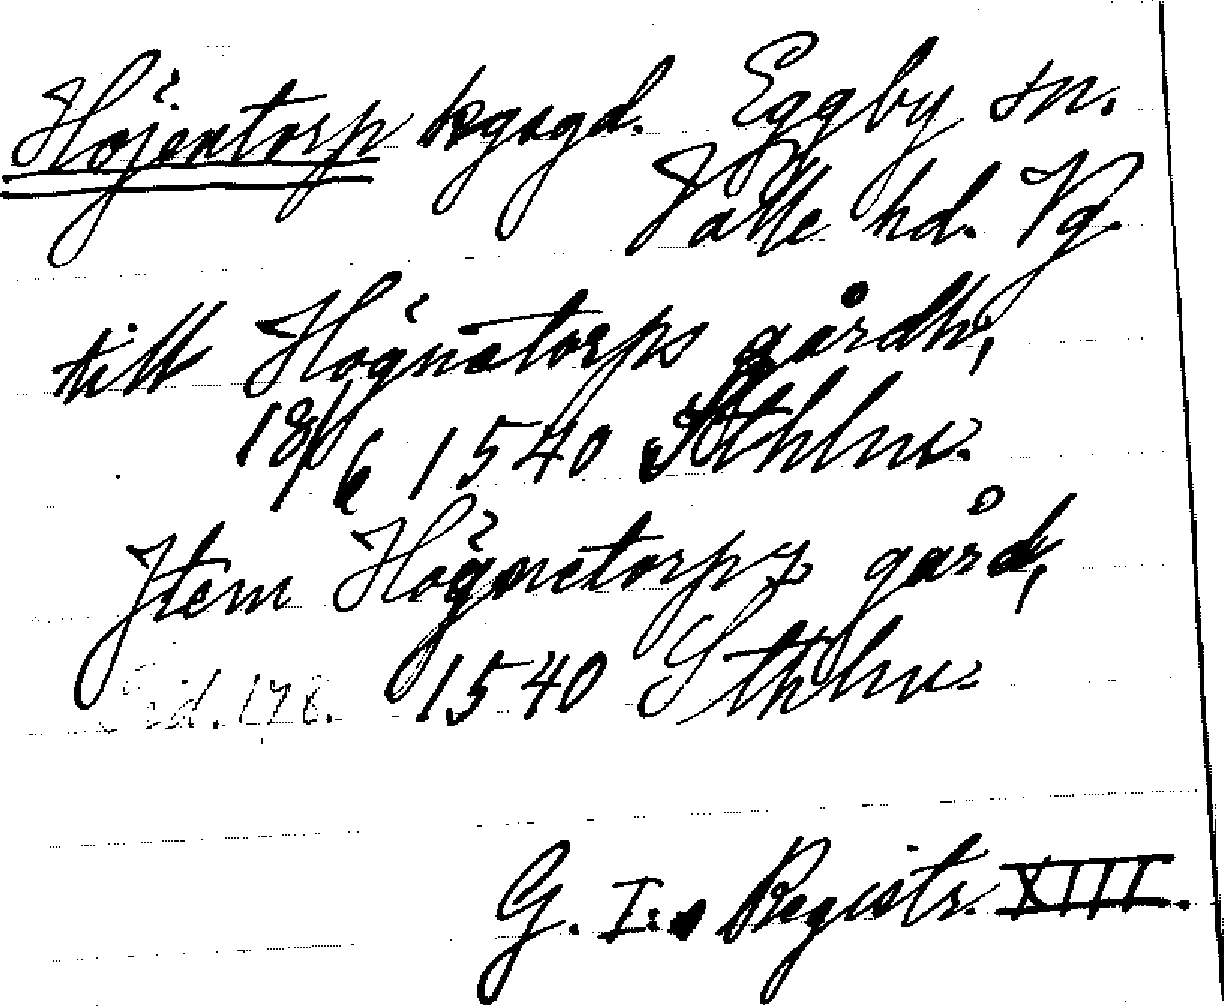 Höjentorp kgsgd. Eggby sn.
Valle hd. Vg.
till Högnetorps gårdh,
18/6 1540 Sthlm.
Jtem Högnetorps gård,
1540 Sthlm.
G. I:s Registr. XIII.